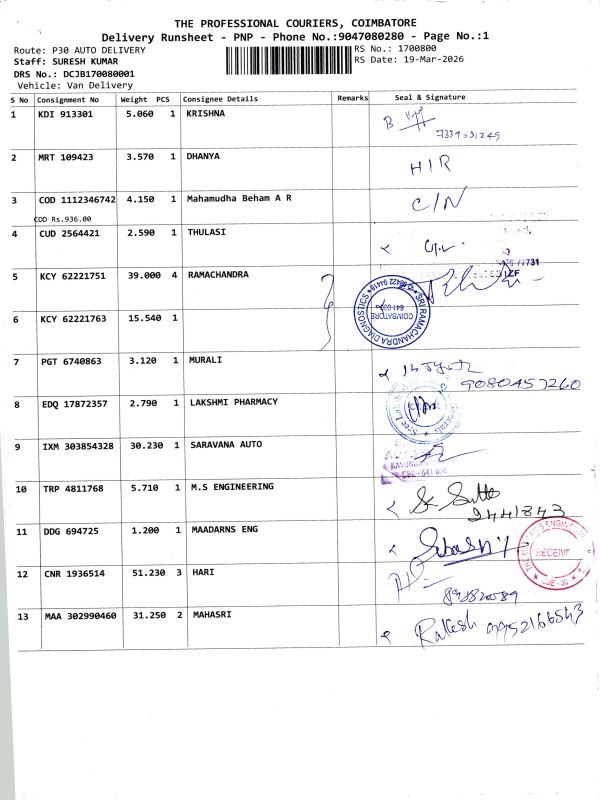 THE PROFESSIONAL COURIERS, COIMBATORE
Delivery Runsheet - PNP - Phone No.:9047080280 - Page No.:1
Route: P30 AUTO DELIVERY RS No.: 1700800
Staff: SURESH KUMAR RS Date: 19-Mar-2026
DRS No.: DCJB170080001
Vehicle: Van Delivery
S No Consignment No Weight PCS Consignee Details Remarks Seal & Signature
1 KDI 913301 5.060 1 KRISHNA B
2 MRT 109423 3.570 1 DHANYA H/R
3 COD 1112346742 4.150 1 Mahamudha Beham A R C/N
COD Rs.936.00
4 CUD 2564421 2.590 1 THULASI
5 KCY 62221751 39.000 4 RAMACHANDRA
SRI RAMACHANDRA DIAGNOSTICS COIMBATORE
6 KCY 62221763 15.540 1
7 PGT 6740863 3.120 1 MURALI
9080457260
8 EDQ 17872357 2.790 1 LAKSHMI PHARMACY
9 IXM 303854328 30.230 1 SARAVANA AUTO
10 TRP 4811768 5.710 1 M.S ENGINEERING
9441843
11 DDG 694725 1.200 1 MAADARNS ENG
RECEIVE
12 CNR 1936514 51.230 3 HARI
13 MAA 302990460 31.250 2 MAHASRI Rakesh 09952166543